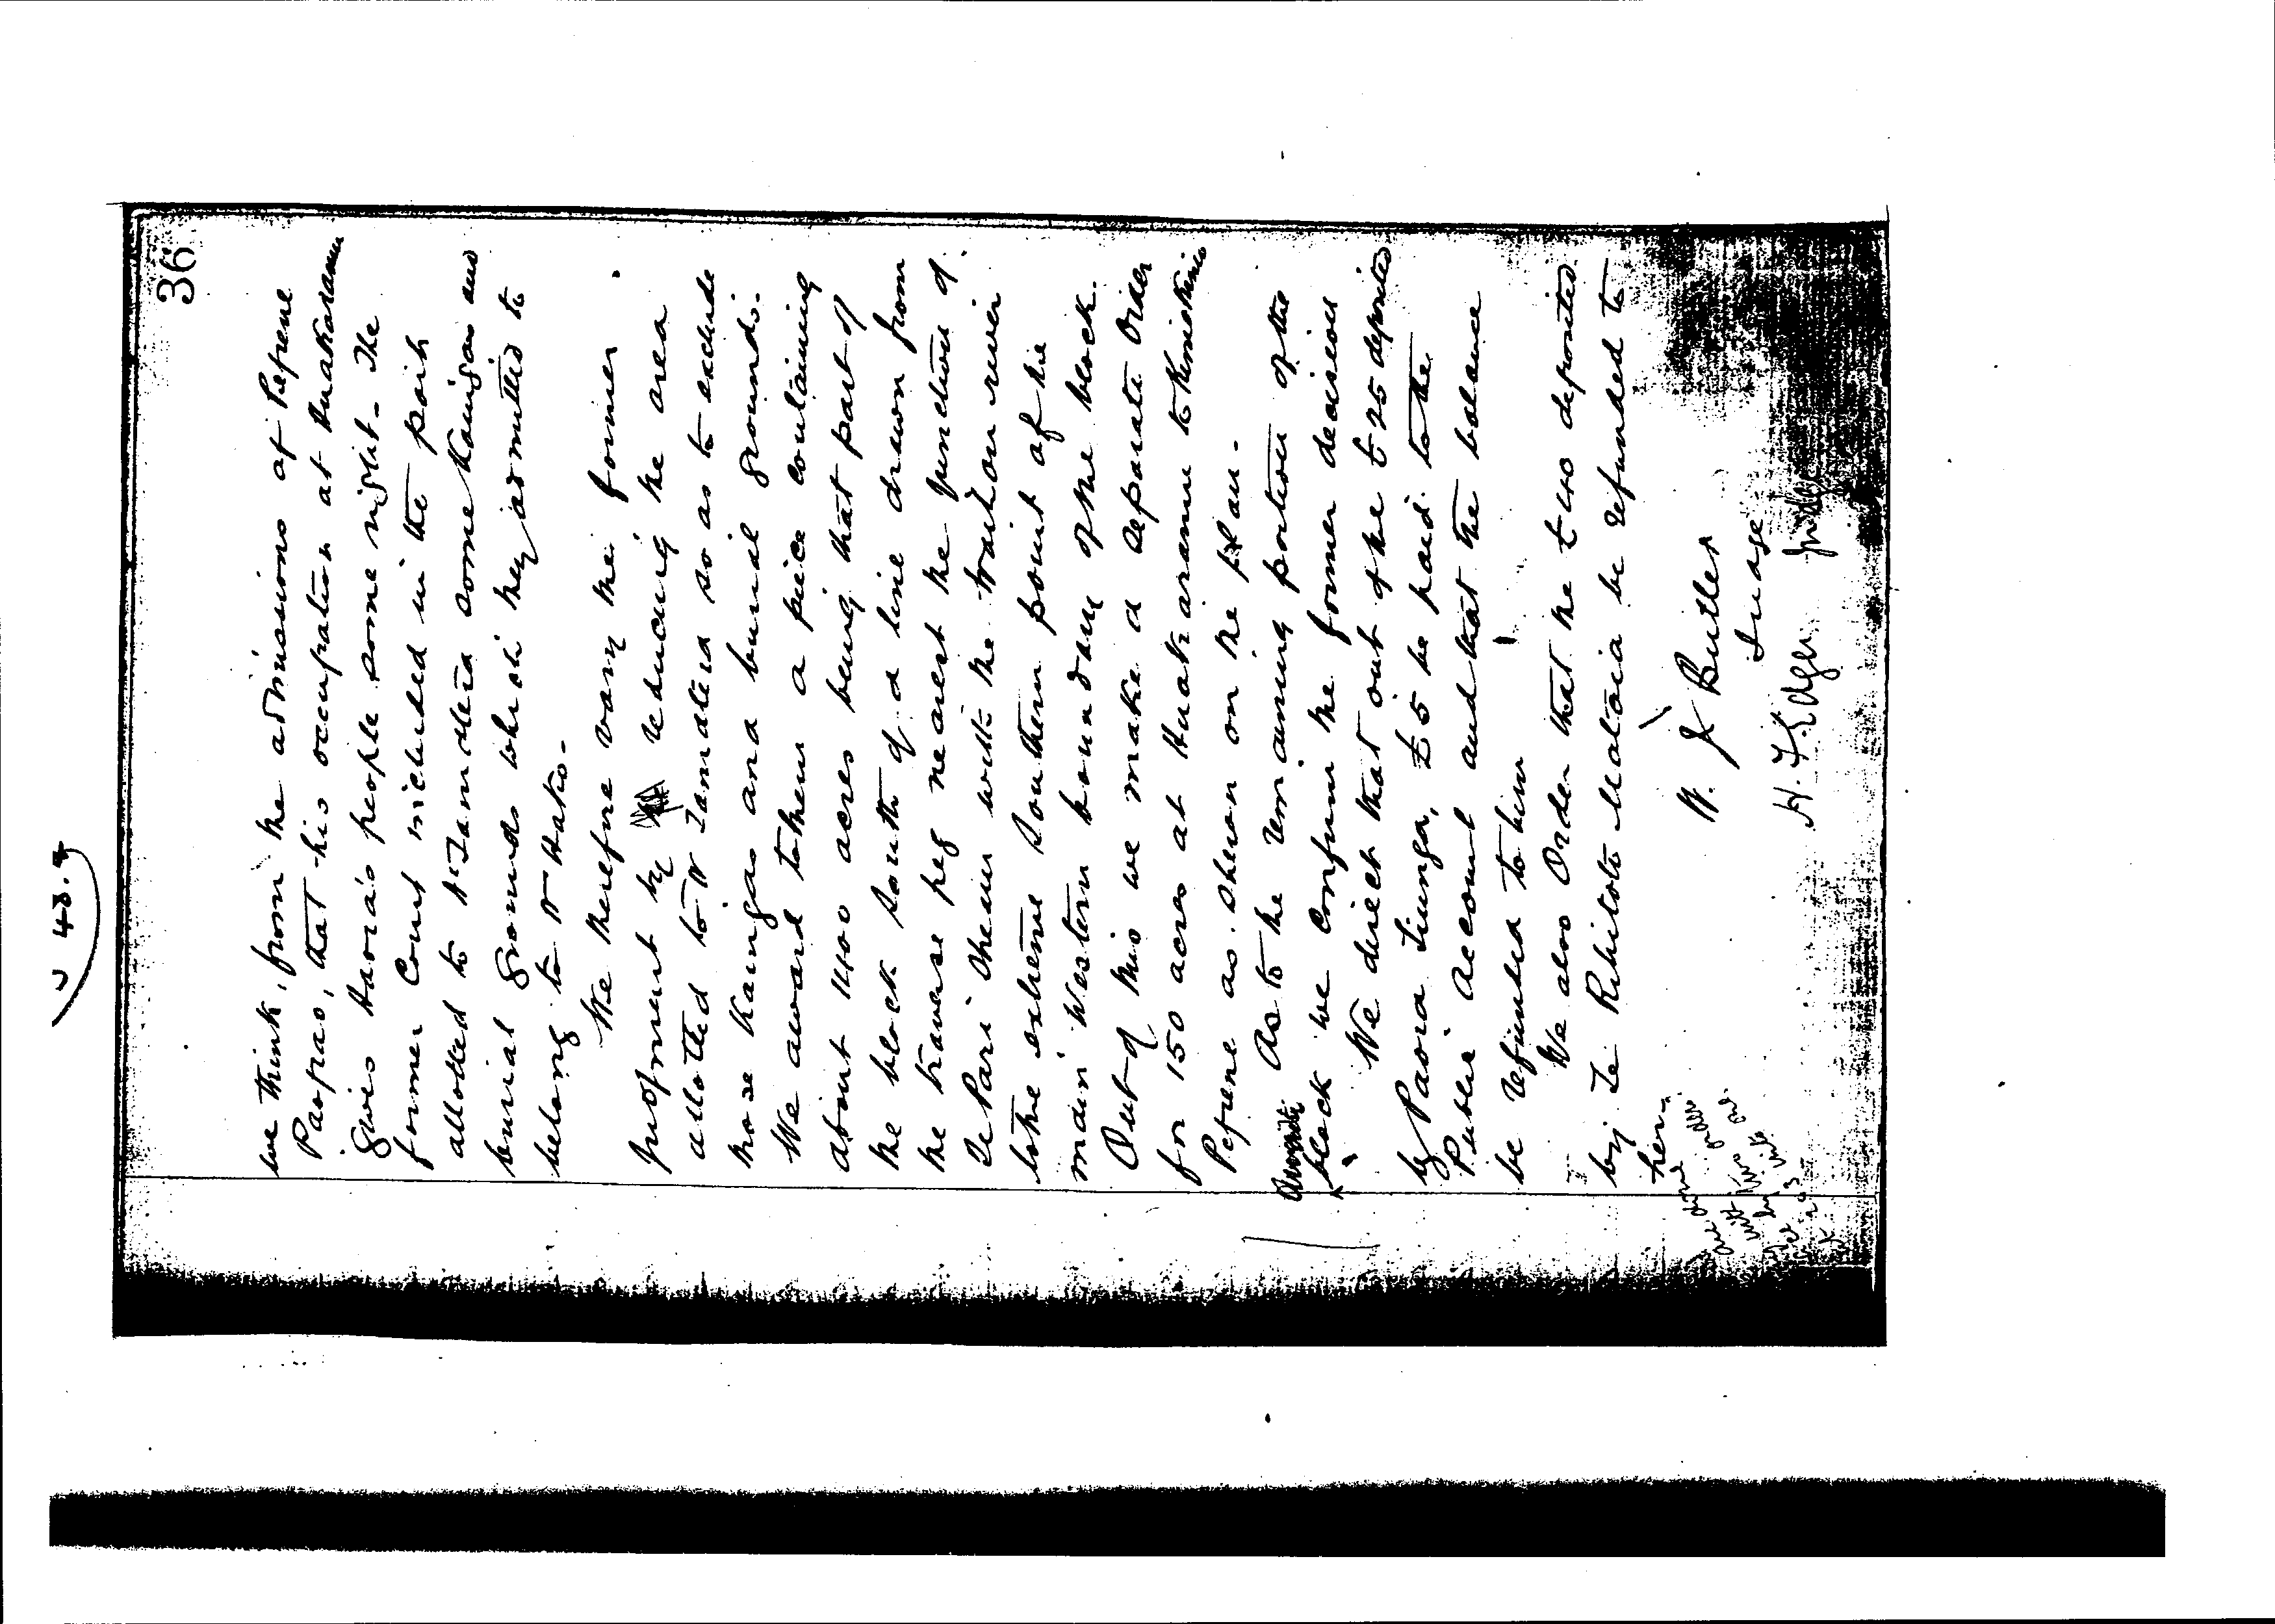 36
we think, from the admissions of Pepene
Paopao, that his occupation at Huakaramu
gives Paora's people some right. The
former Court included in the part
allotted to N'Tamatera some Kaingas and
burial grounds which they admitted to
belong to N Hako.
We therefore vary the former
judgment by reducing the area
allotted to N Tamatera so as to exclude
those Kaingas and burial grounds.
We award to them a piece containing
about 1400 acres being that part of
the block South of a line drawn from
the traverse peg nearest the junction of
Te Pari stream with the river
to the extreme Southern point of the
main Western boundary of the block.
Out of this we make a separate Order
for 150 acres at Huakaramu to
Pepene as shewn on the plan.
As to the remaining portion of the
block we confirm the former decision
We direct that out of the £25 deposited
by Paora Tiunga, £5 be paid to the
Public Account and that the balance
be refunded to him
We also Order that the £40 deposited
by Te Rihitoto Mataia be refunded to
her.
W. J Butler
Judge
H. F. Edger
Judge